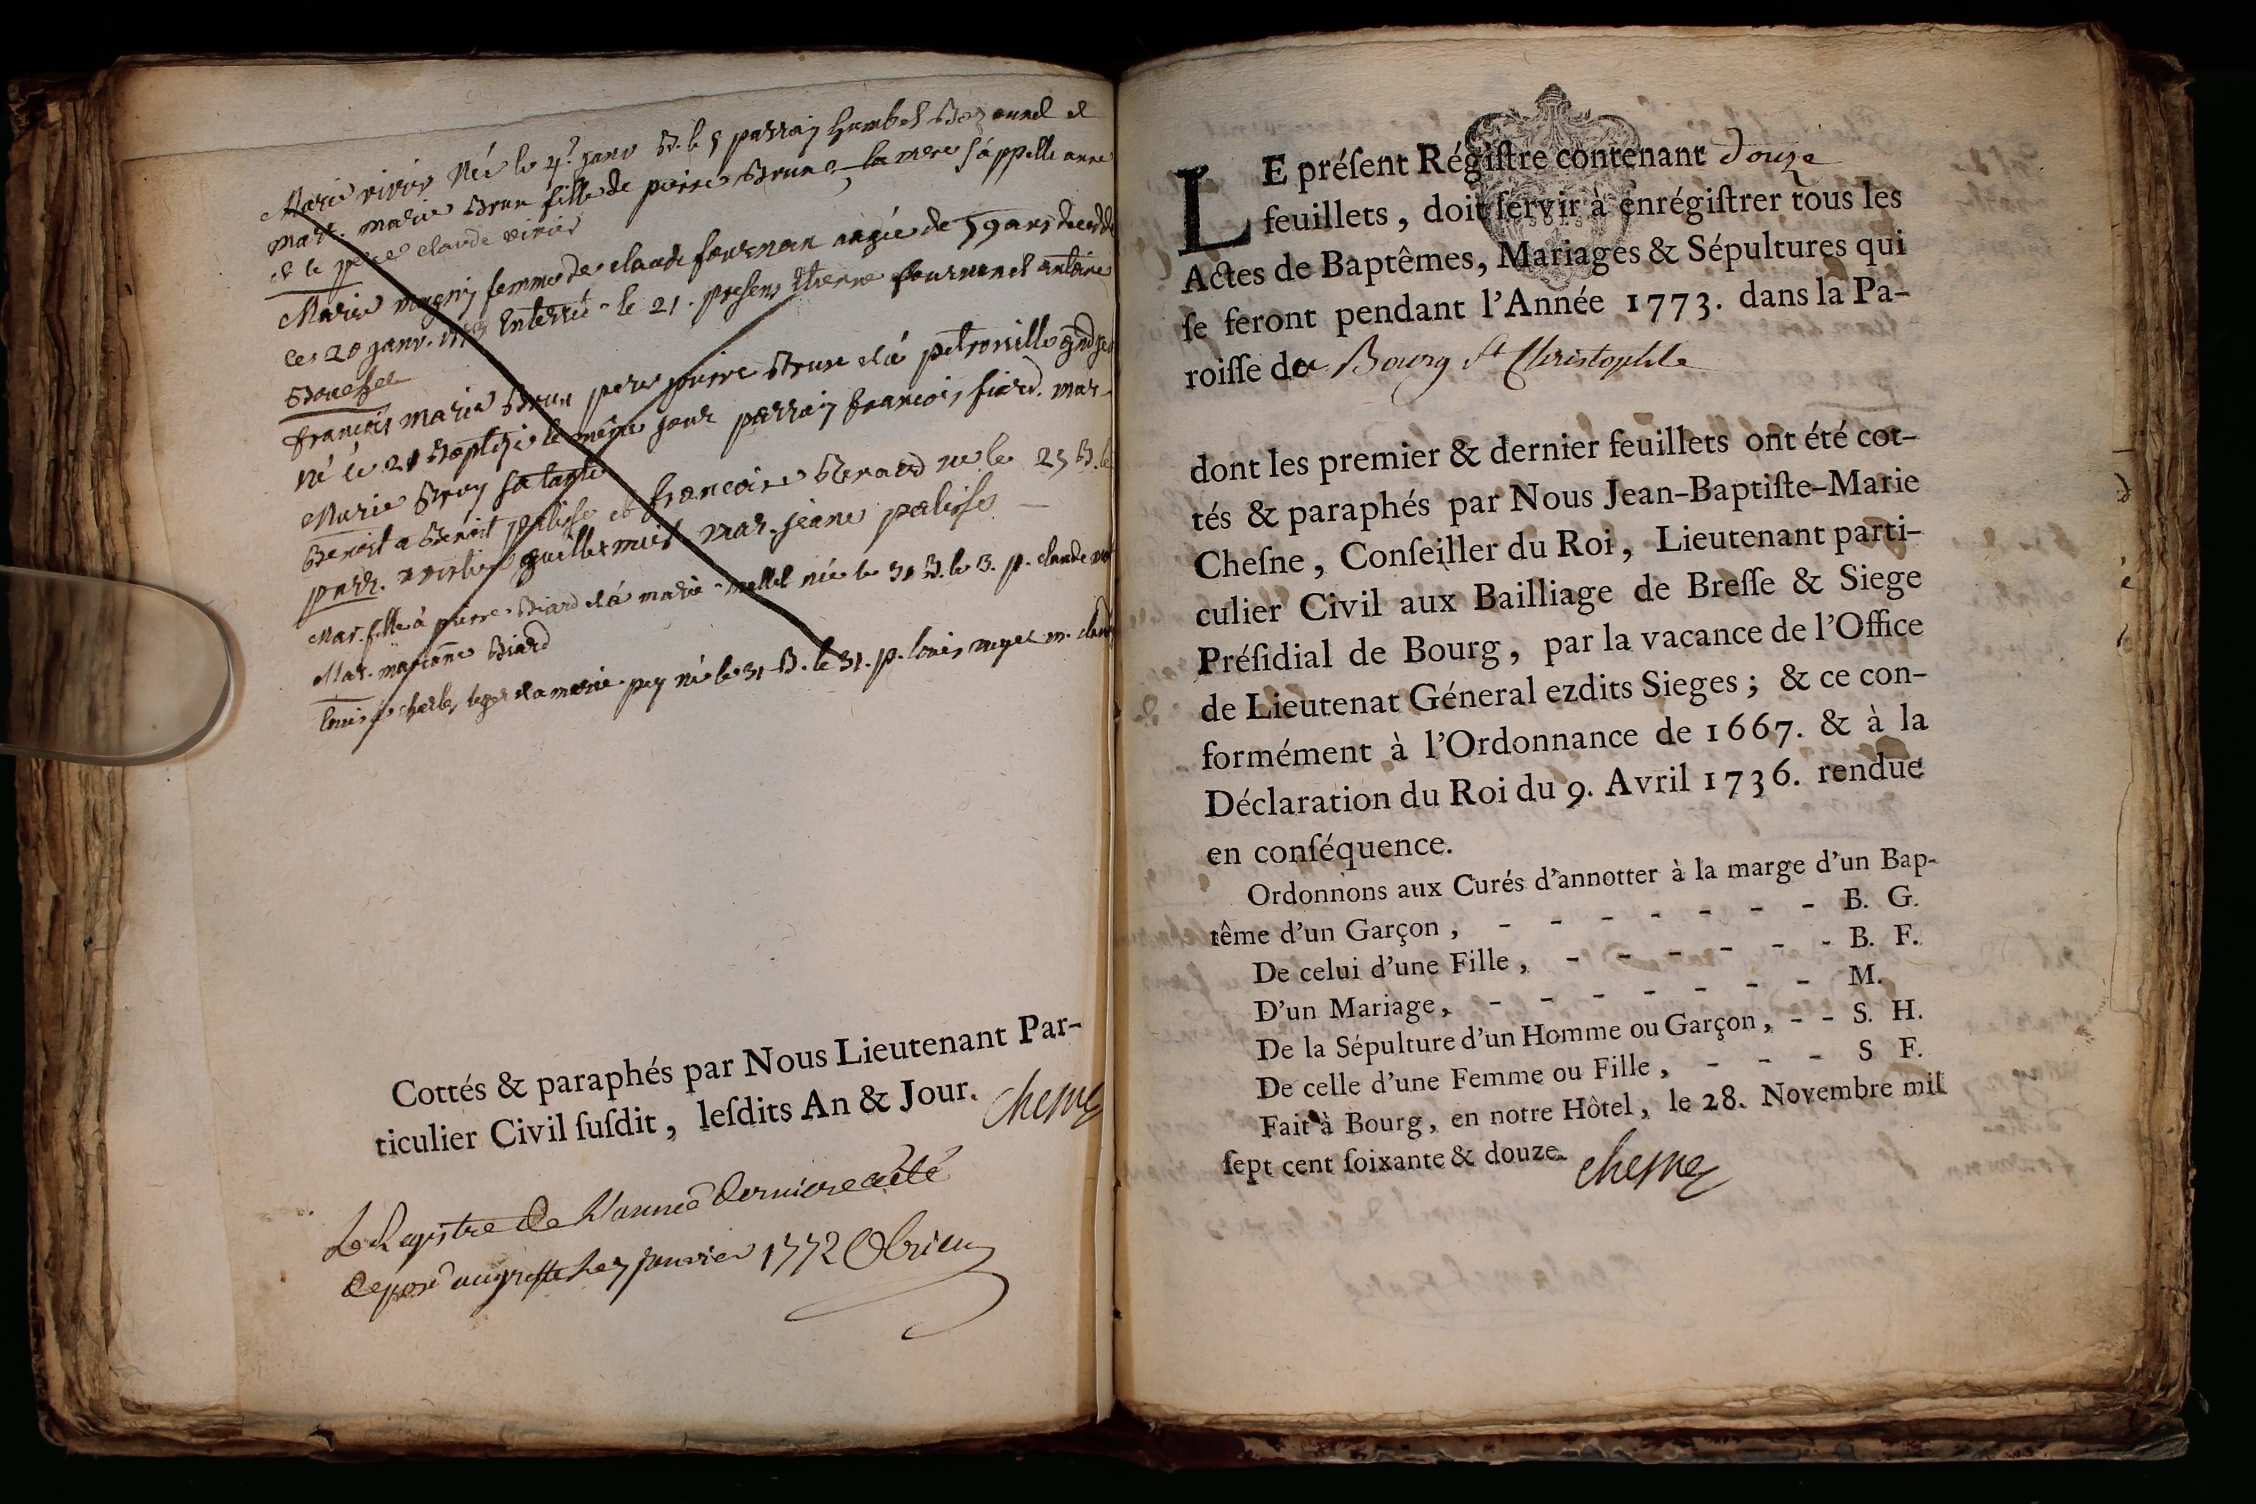 Marie vivier Née le 4e janv B. le 5 parrain humbert et
marr. marie Brun fille de pierre Brun la mere s'appelle anne
et le pere claude vivier
Marie magnin femme de claude fournian angée de 59 ans decedée
le 20 janv. Enterré le 21. presens Etienne fournian et antoine
françois marie Brun pere pierre Brun et à petronille
Né le 21 Baptisé le même jour parrain françois fiard. mar.
Marie Brun sa tante
Benoist a Benoist palisse et françoise Benard né le 25 B. le
parr. guillermiet mar. jeane palisse
Mar. fille à pierre Biard et à marie né le 31 B. le 3. p. claude
Mar. Biard
louis à charles leger et a marie pey né le 31 B. le 31. p. louis m. claud
Cottés & paraphés par Nous Lieutenant Par-
ticulier Civil ſuſdit, leſdits An & Jour. chesne
Le Registre de L'année derniere a été
deposé au greffe le 7 janvier 1772
LE préſent Régiſtre contenant douze
feuillets, doit ſervir à enrégiſtrer tous les
Actes de Baptêmes, Mariages & Sépultures qui
ſe feront pendant l'Année 1773. dans la Pa-
roiſſe de Bourg St Christophle
dont les premier & dernier feuillets ont été cot-
tés & paraphés par Nous Jean-Baptiſte-Marie
Cheſne, Conſeiller du Roi, Lieutenant parti-
culier Civil aux Bailliage de Breſſe & Siege
Préſidial de Bourg, par la vacance de l'Office
de Lieutenat Géneral ezdits Sieges; & ce con-
formément à l'Ordonnance de 1667. & à la
Déclaration du Roi du 9. Avril 1736. rendue
en conſéquence.
Ordonnons aux Curés d'annotter à la marge d'un Bap-
tême d'un Garçon, - - - - - - - B. G.
De celui d'une Fille, - - - - - - B. F.
D'un Mariage, - - - - - - - M.
De la Sépulture d'un Homme ou Garçon, - - S. H.
De celle d'une Femme ou Fille, - - - S F.
Fait à Bourg, en notre Hôtel, le 28. Novembre mil
ſept cent ſoixante & douze. chesne